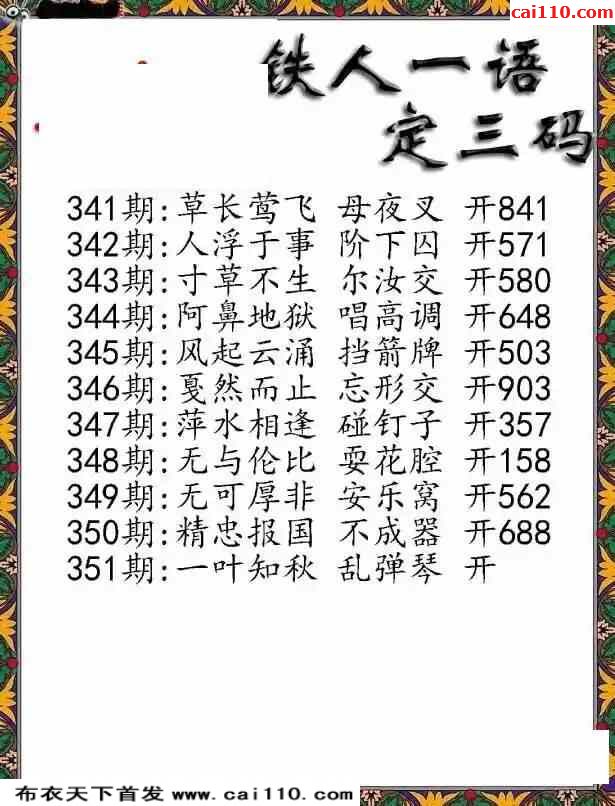 cai110.com
铁人一语
定三码
341期:草长莺飞 母夜叉 开841
342期:人浮于事 阶下囚 开571
343期:寸草不生 尔汝交 开580
344期:阿鼻地狱 唱高调 开648
345期:风起云涌 挡箭牌 开503
346期:戛然而止 忘形交 开903
347期:萍水相逢 碰钉子 开357
348期:无与伦比 耍花腔 开158
349期:无可厚非 安乐窝 开562
350期:精忠报国 不成器 开688
351期:一叶知秋 乱弹琴 开
布衣天下首发 www.cai110.com